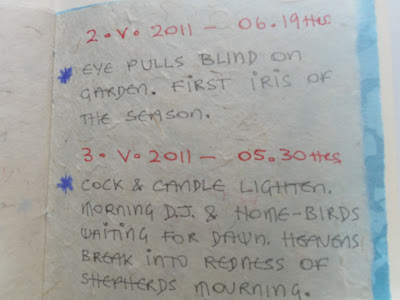 2. V. 2011 — 06.19 Hrs
* EYE PULLS BLIND ON
GARDEN. FIRST IRIS OF
THE SEASON.
3. V. 2011 — 05.30 Hrs
* COCK & CANDLE LIGHTEN.
MORNING D.J. & HOME-BIRDS
WAITING FOR DAWN. HEAVENS
BREAK INTO REDNESS OF
SHEPHERDS MOURNING.